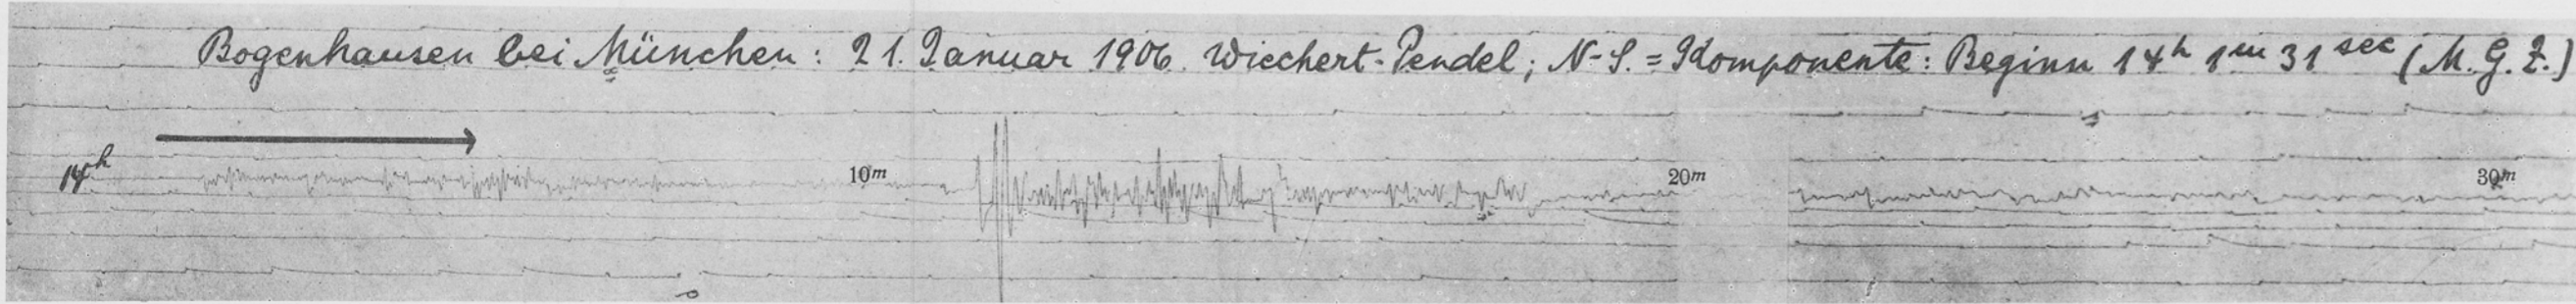 Bogenhausen bei München: 21. Januar 1906. Wiechert-Pendel; N-S.=Komponente: Beginn 14h 1m 31sec (M. G. Z.)
14h 10m 20m 30m